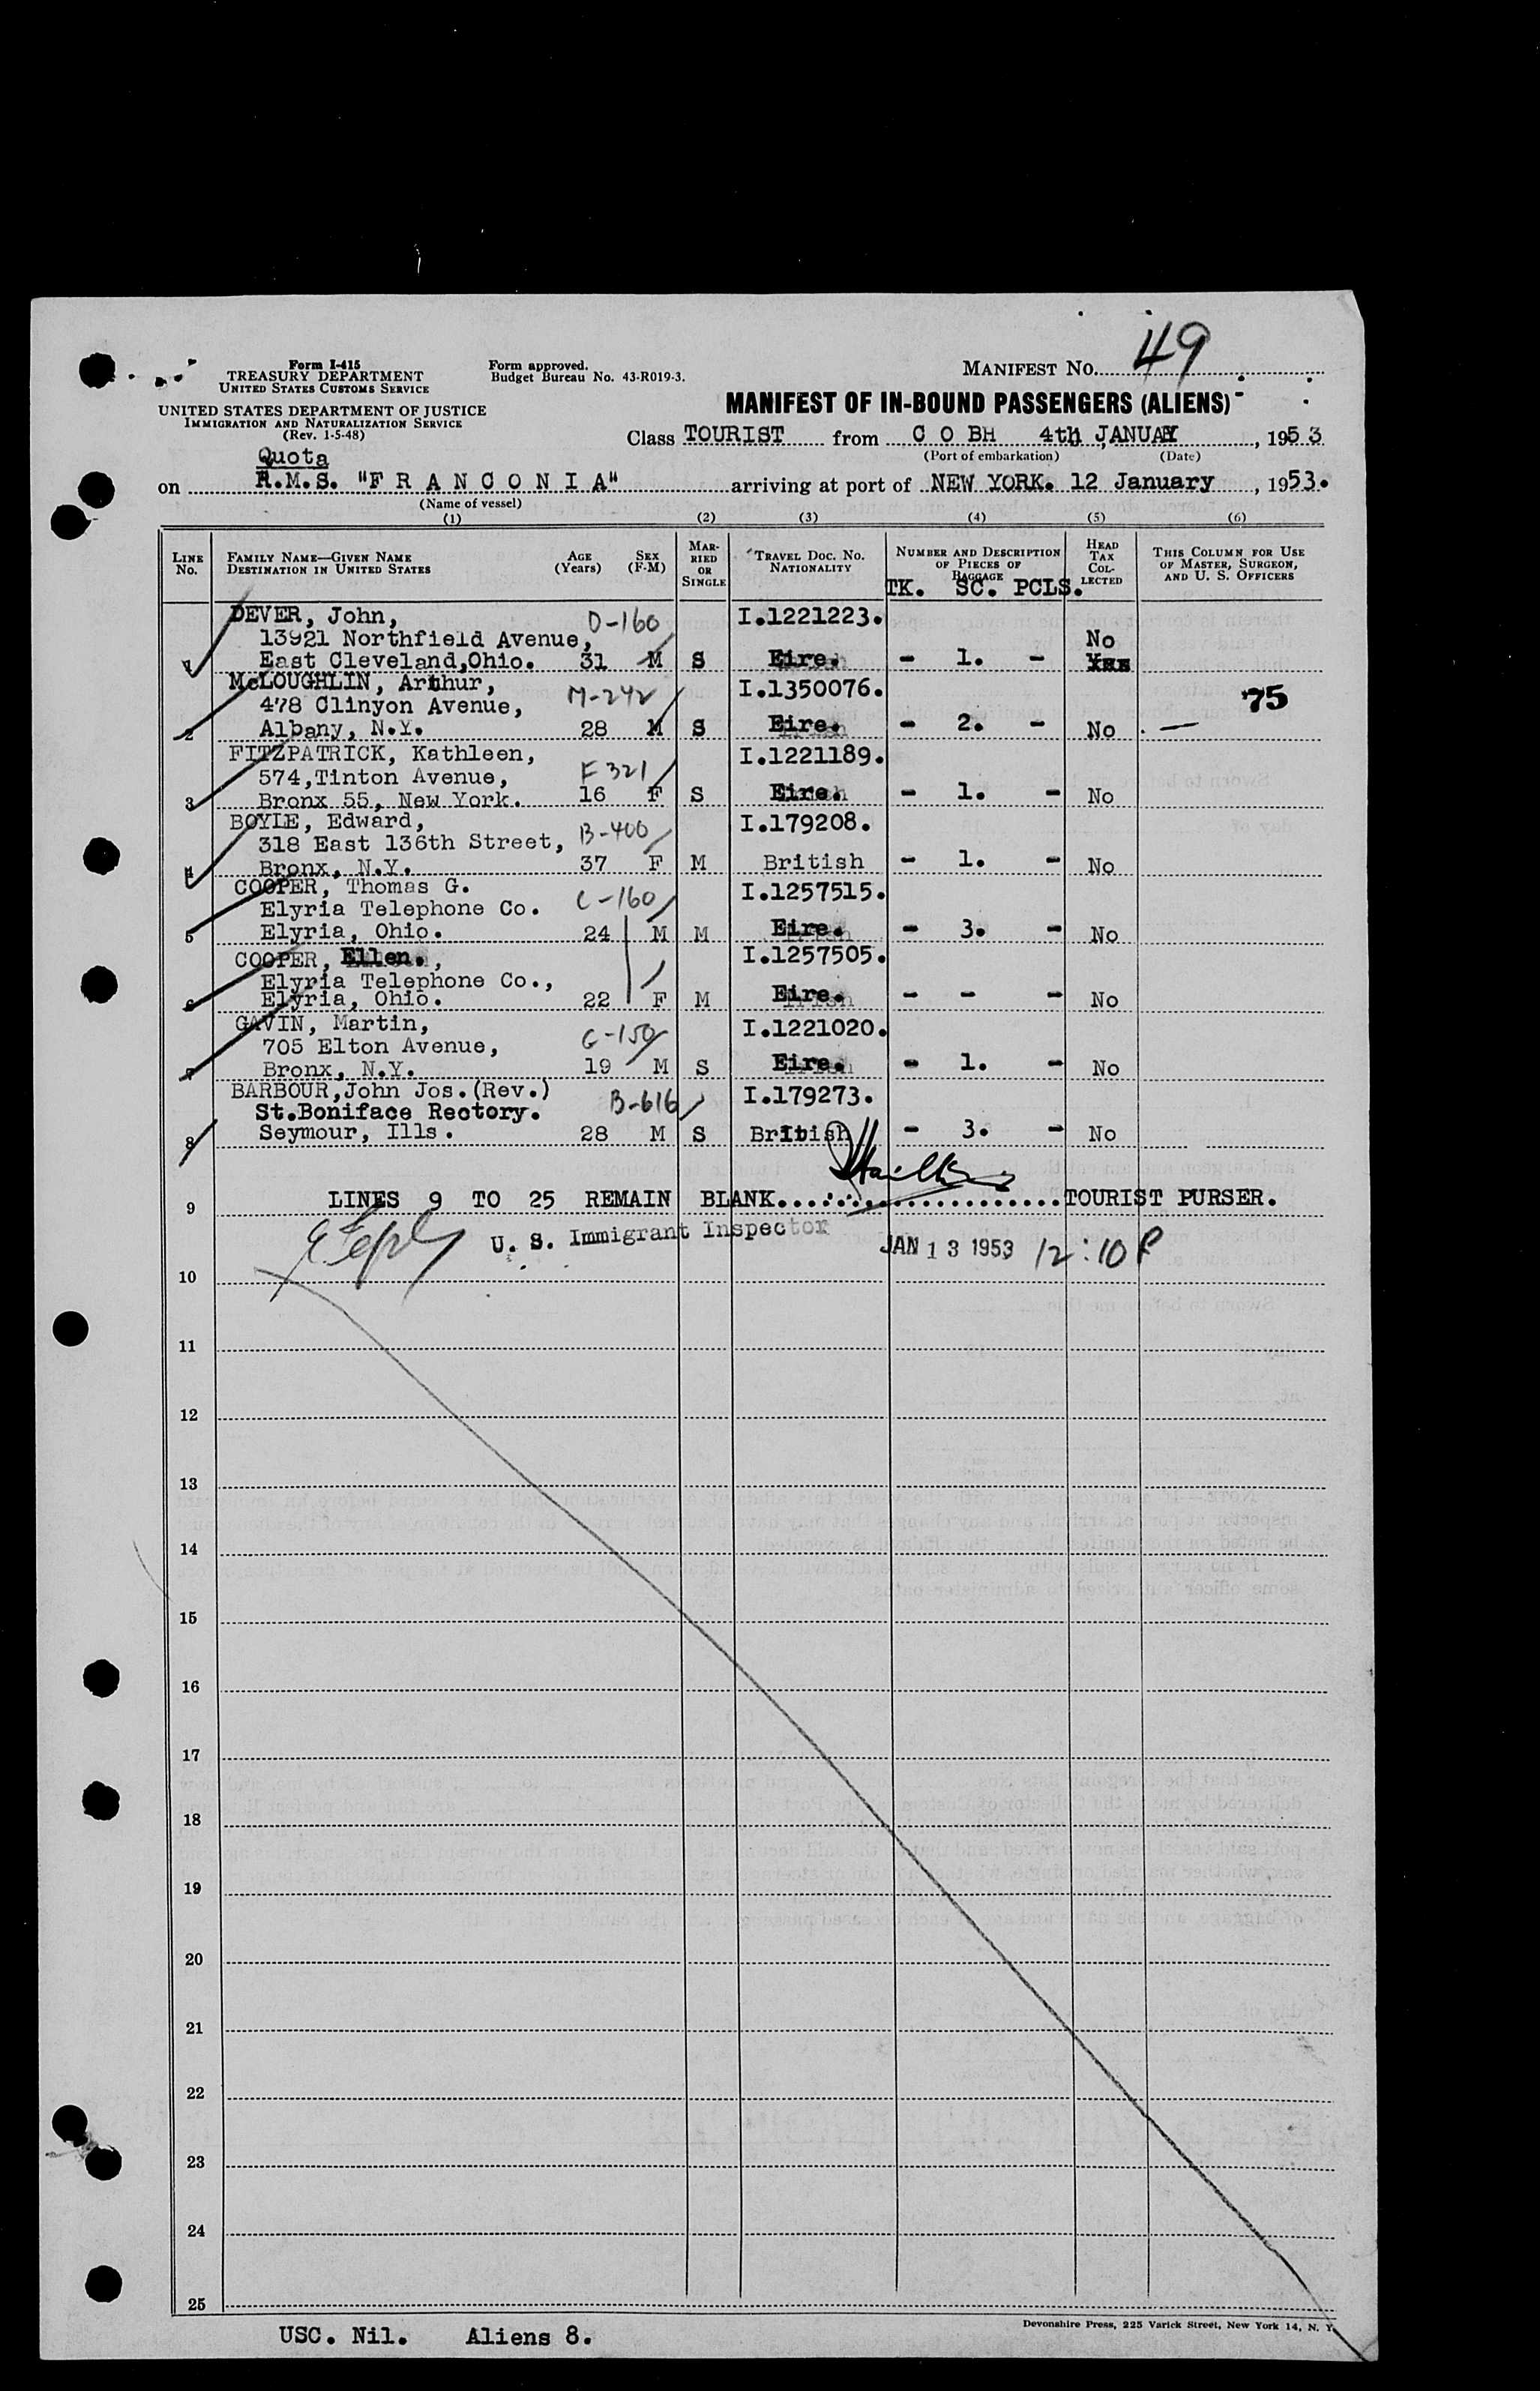 49
Form I-415
TREASURY DEPARTMENT
UNITED STATES CUSTOMS SERVICE
Form approved.
Budget Bureau No. 43-R019-3.
MANIFEST NO.
UNITED STATES DEPARTMENT OF JUSTICE
IMMIGRATION AND NATURALIZATION SERVICE
(Rev. 1-5-48)
MANIFEST OF IN-BOUND PASSENGERS (ALIENS)
Class TOURIST from C O BH 4th JANUAY, 1953
(Port of embarkation) (Date)
Quota
on R.M.S. "F R A N C O N I A" arriving at port of NEW YORK. 12 January, 1953.
(Name of vessel)
(1) (2) (3) (4) (5) (6)
LINE NO. FAMILY NAME—GIVEN NAME DESTINATION IN UNITED STATES AGE (Years) SEX (F-M) MARRIED OR SINGLE TRAVEL DOC. NO. NATIONALITY NUMBER AND DESCRIPTION OF PIECES OF BAGGAGE HEAD TAX COLLECTED THIS COLUMN FOR USE OF MASTER, SURGEON, AND U. S. OFFICERS
TK. SC. PCLS.
DEVER, John, D-160 I.1221223.
13921 Northfield Avenue, No
1 East Cleveland,Ohio. 31 M S Eire. - 1. - Yes
McLOUGHLIN, Arthur, M-242 I.1350076.
478 Clinyon Avenue, 75
2 Albany, N.Y. 28 M S Eire. - 2. - No —
FITZPATRICK, Kathleen, I.1221189.
574,Tinton Avenue, F321
3 Bronx 55, New York. 16 F S Eire. - 1. - No
BOYLE, Edward, I.179208.
318 East 136th Street, B-400
4 Bronx, N.Y. 37 F M British - 1. - No
COOPER, Thomas G. C-160 I.1257515.
Elyria Telephone Co.
5 Elyria, Ohio. 24 M M Eire. - 3. - No
COOPER, Ellen., I.1257505.
Elyria Telephone Co.,
6 Elyria, Ohio. 22 F M Eire. - - - No
GAVIN, Martin, G-150 I.1221020.
705 Elton Avenue,
7 Bronx, N.Y. 19 M S Eire. - 1. - No
BARBOUR,John Jos.(Rev.) B-616 I.179273.
St.Boniface Rectory.
8 Seymour, Ills. 28 M S British - 3. - No
9 LINES 9 TO 25 REMAIN BLANK..........................TOURIST PURSER.
U. S. Immigrant Inspector JAN 13 1953 12:10 P
10
11
12
13
14
15
16
17
18
19
20
21
22
23
24
25
Devonshire Press, 225 Varick Street, New York 14, N. Y.
USC. Nil. Aliens 8.